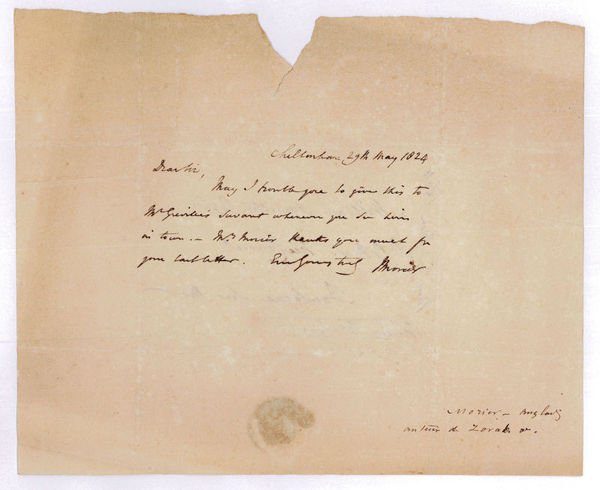 Cheltenham 29th May 1824
Dear Sir,
May I trouble you to give this to
Mr Greville's servant whenever you see him
in town. – Mrs Morier thanks you much for
your last letter. Ever yours truly JMorier
Morier – Anglais
auteur de Zorab